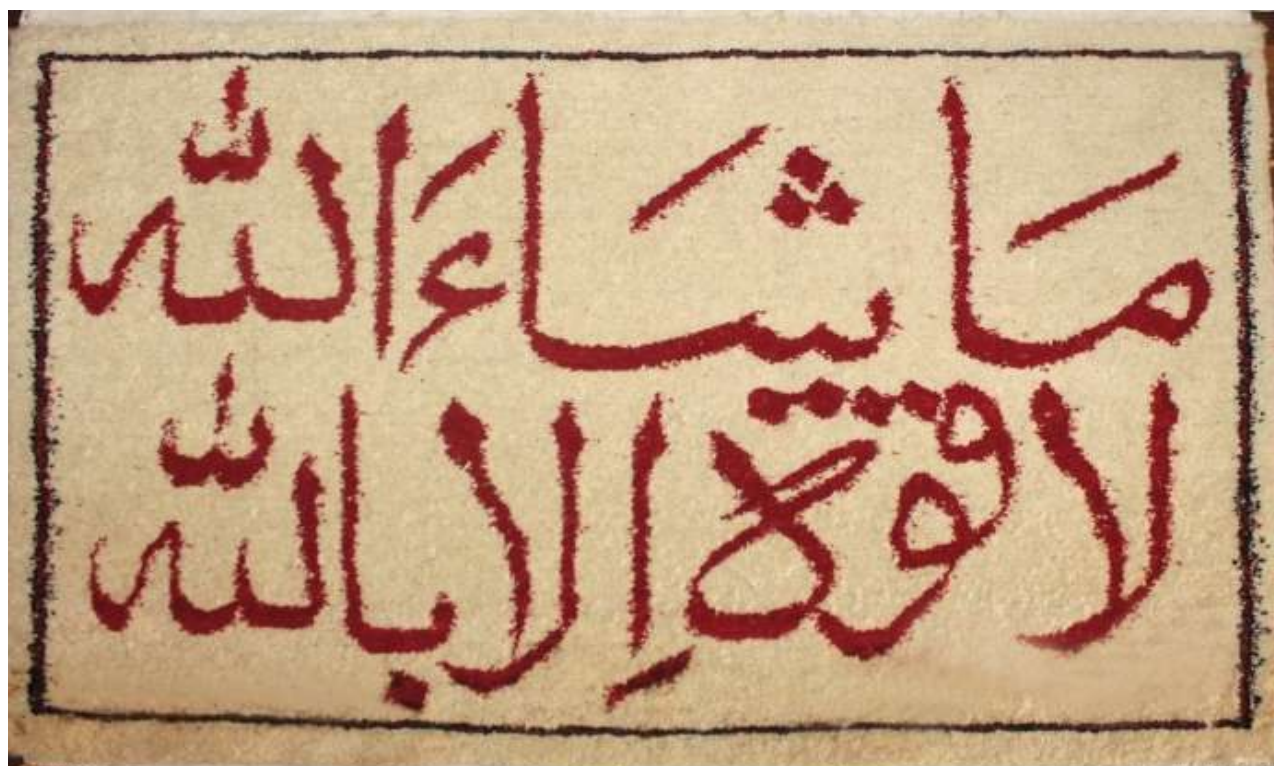 مَا شَاءَ الله
لا قوة اِلا بالله